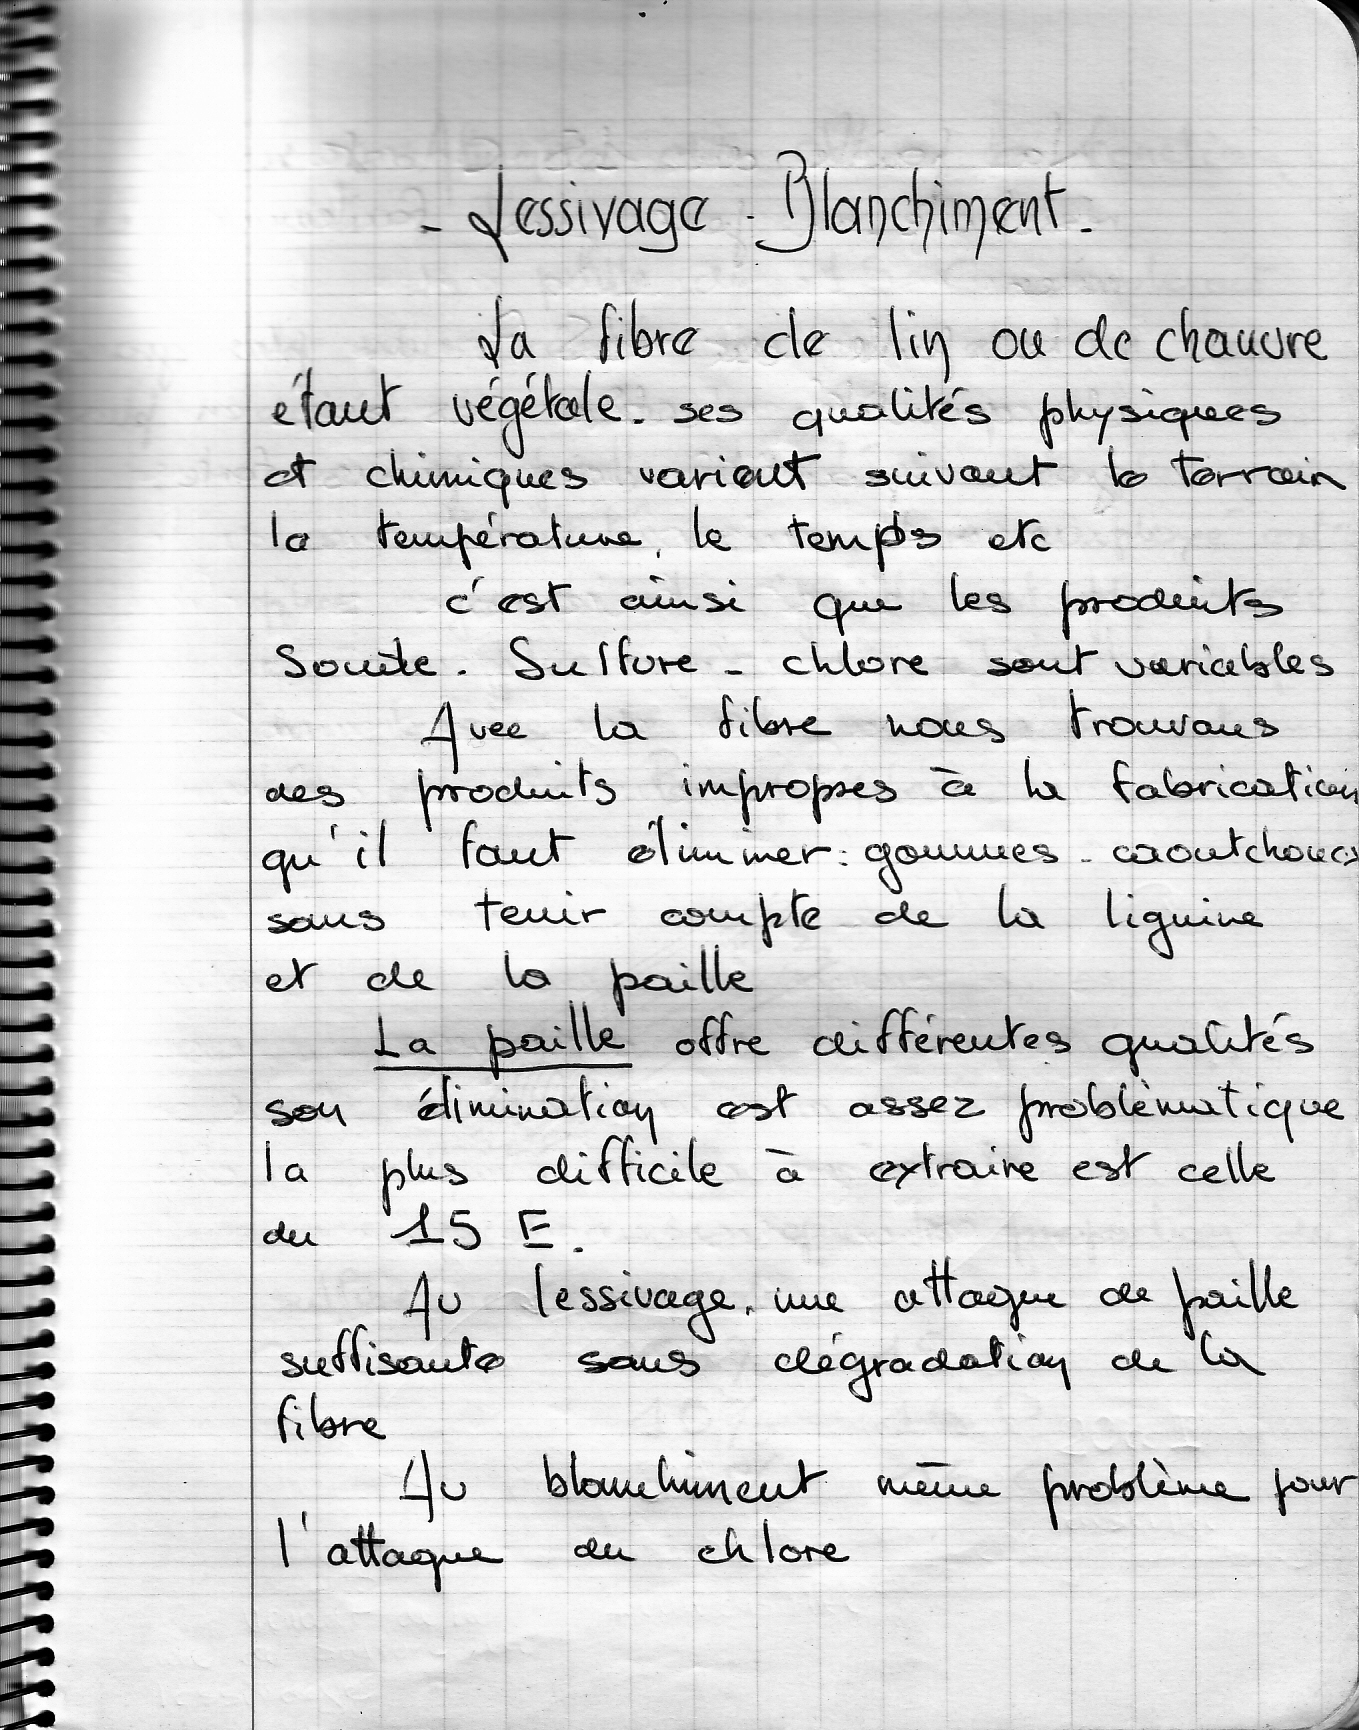 - Lessivage - Blanchiment.
La fibre de lin ou de chanvre
étant végétale. ses qualités physiques
et chimiques varient suivant le terrain
la température, le temps etc
c'est ainsi que les produits
Soude. Sulfure - chlore sont variables
Avec la fibre nous trouvons
des produits impropres à la fabrication
qu'il faut éliminer : gommes - caoutchoucs
sans tenir compte de la lignine
et de la paille
La paille offre différentes qualités
son élimination est assez problèmatique
la plus difficile à extraire est celle
du 15 E.
Au lessivage, une attaque de paille
suffisante sans dégradation de la
fibre
Au blanchiment même problème pour
l'attaque du chlore